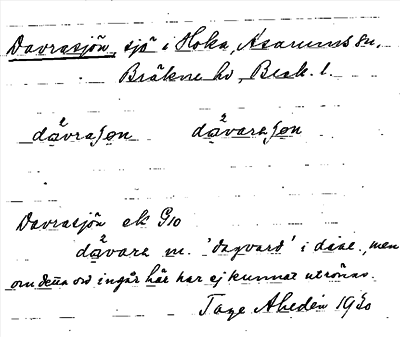 Davrasjön, sjö i Hoka, Asarums sn,
Bräkne hd, Blek. l.
dåvrasøn dåvarasøn
Davrasjön ek G10
dåvara m. 'dagvard' i dial., men
om detta ord ingår här har ej kunnat utrönas.
Tage Ahldén 1930